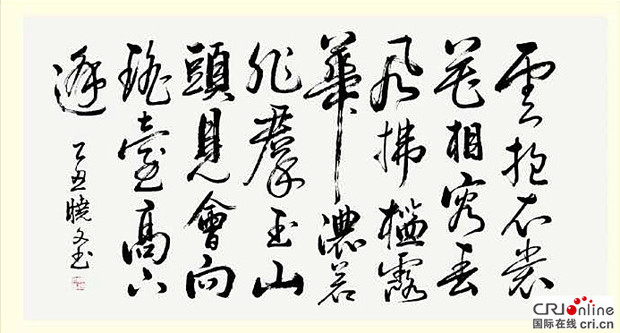 雲想衣裳
花想容春
風拂檻露
華濃若
非羣玉山
頭見會向
瑤臺高下
逢
乙丑曉文
CRIonline
国际在线 cri.cn